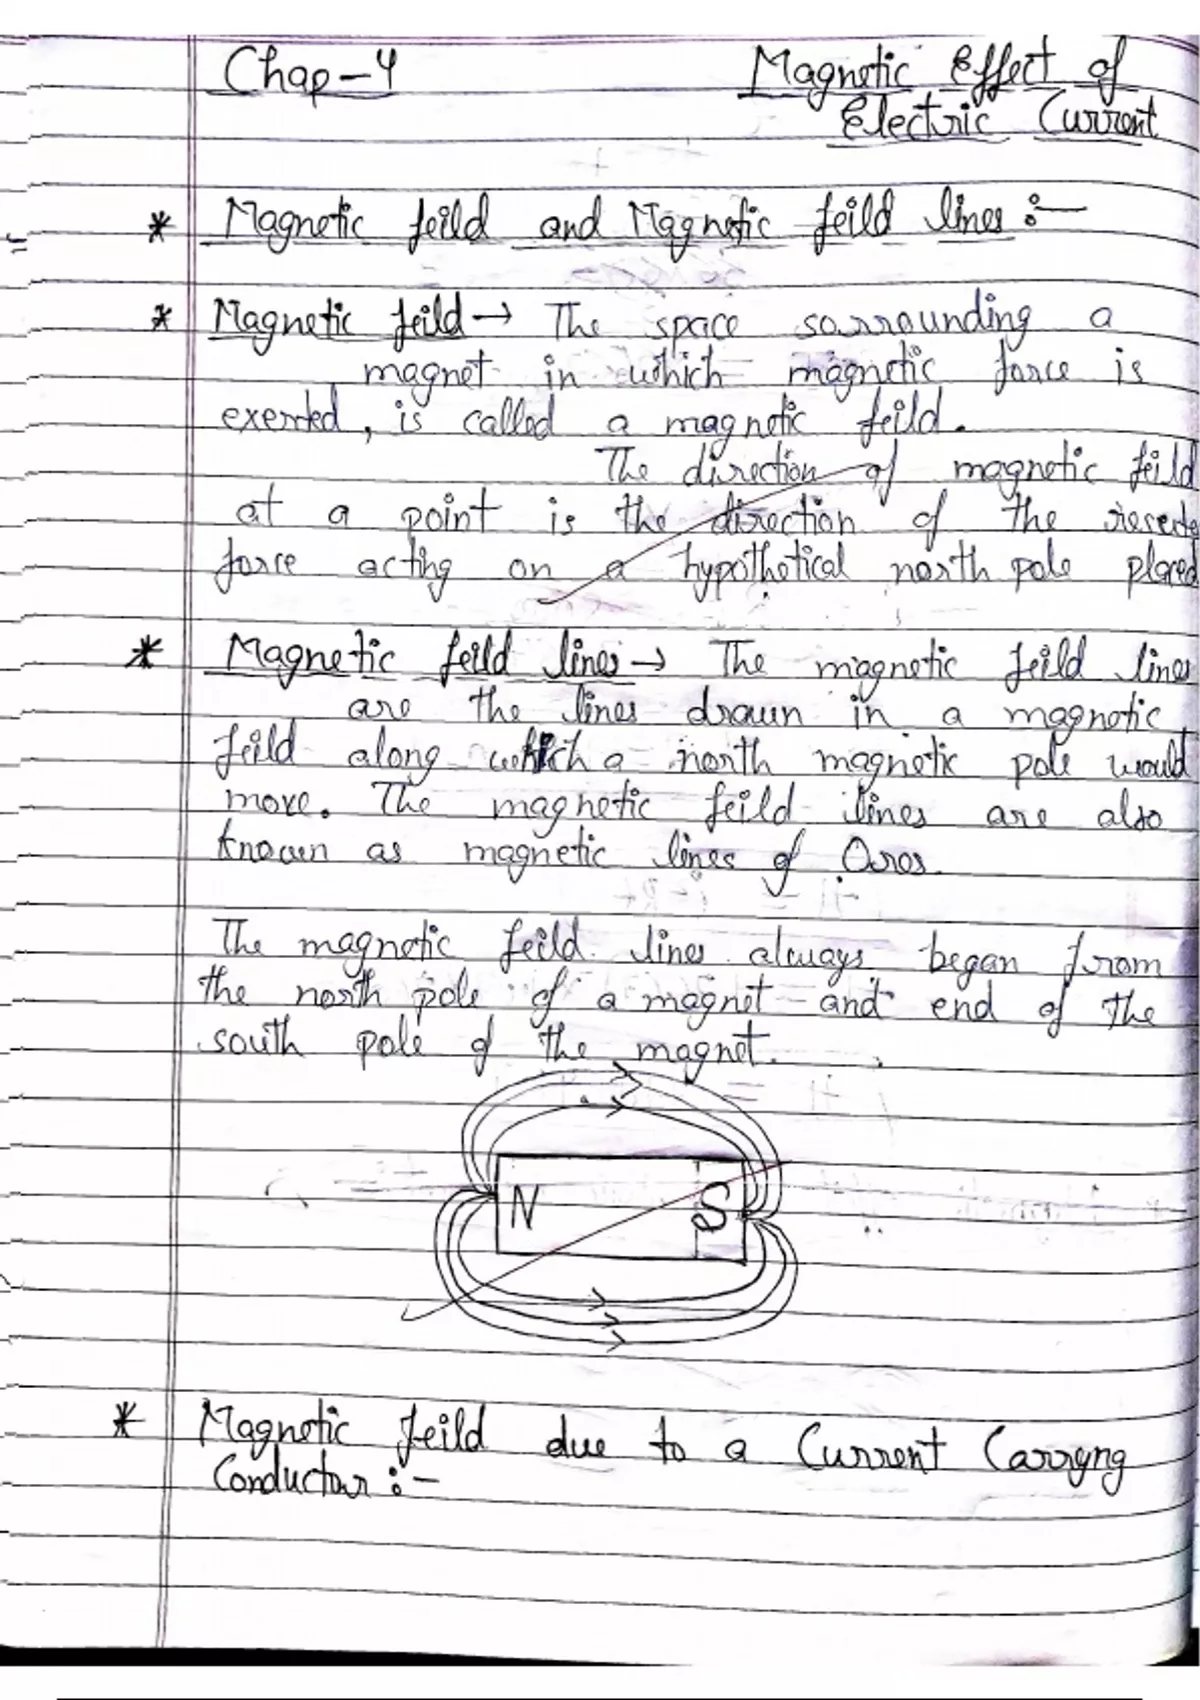 Chap-4
Magnetic Effect of
Electric Current
* Magnetic feild and Magnetic feild lines :-
* Magnetic feild → The space sorrounding a
magnet in which magnetic force is
exerted, is called a magnetic feild.
The direction of magnetic feild
at a point is the direction of the
force acting on a hypothetical north pole placed
* Magnetic feild lines → The magnetic feild lines
are the lines drawn in a magnetic
feild along which a north magnetic pole would
move. The magnetic feild lines are also
known as magnetic lines of
The magnetic feild lines always began from
the north pole of a magnet and end of the
south pole of the magnet.
N S
* Magnetic feild due to a Current Carryng
Conductor :-